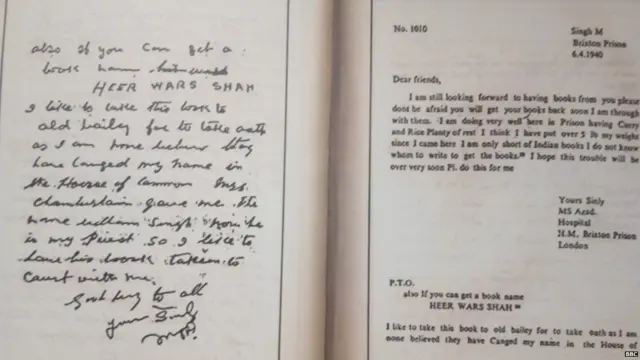 also if you can get a
book name
HEER WARS SHAH
I like to take this book to
old bailey for to take oath
as I am none believe they
have Canged my name in
the House of Common Mrs.
Chamberlain gave me the
name William Singh
is my Priest so I like to
have his book taken to
Court with me.
Good bay to all
your Sinly
No. 1010
Singh M
Brixton Prison
6.4.1940
Dear friends,
I am still looking forward to having books from you please
dont be afraid you will get your books back soon I am through
with them. I am doing very well here in Prison having Curry
and Rice Plenty of rest I think I have put over 5 lb my weight
since I came here I am only short of Indian books I do not know
whom to write to get the books. I hope this trouble will be
over very soon Pl. do this for me
Yours Sinly
MS Azad.
Hospital
H.M. Brixton Prison
London
P.T.O.
also If you can get a book name
HEER WARS SHAH
I like to take this book to old bailey for to take oath as I am
none believed they have Canged my name in the House of
BBC